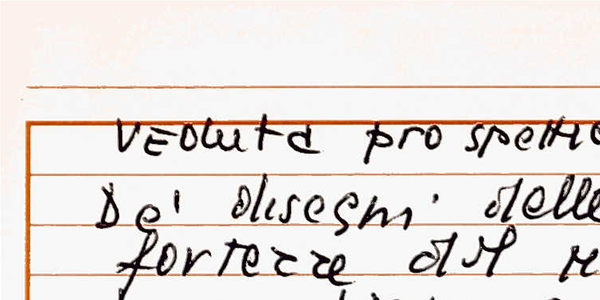 Veduta prospettic
De' disegni delle
fortezze del